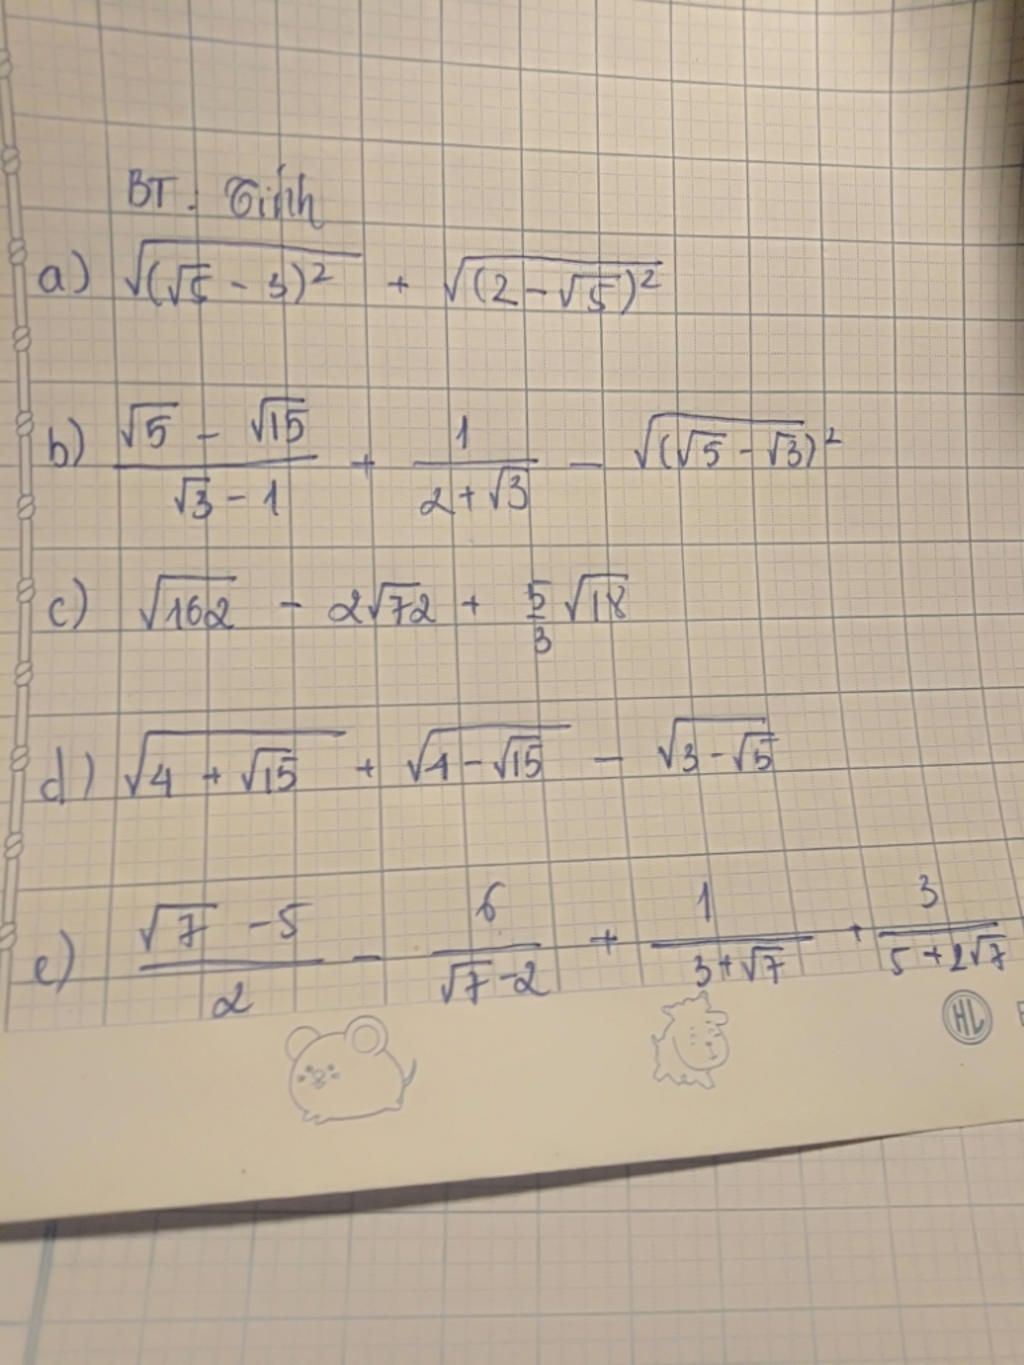 BT: Tính
a) √((√5 - 3)²) + √((2 - √5)²)
b) (√5 - √15)/(√3 - 1) + 1/(2 + √3) - √((√5 - √3)²)
c) √162 - 2√72 + 5/3 √18
d) √(4 + √15) + √(4 - √15) - √(3 - √5)
e) (√7 - 5)/2 - 6/(√7 - 2) + 1/(3 + √7) + 3/(5 + 2√7)
HL